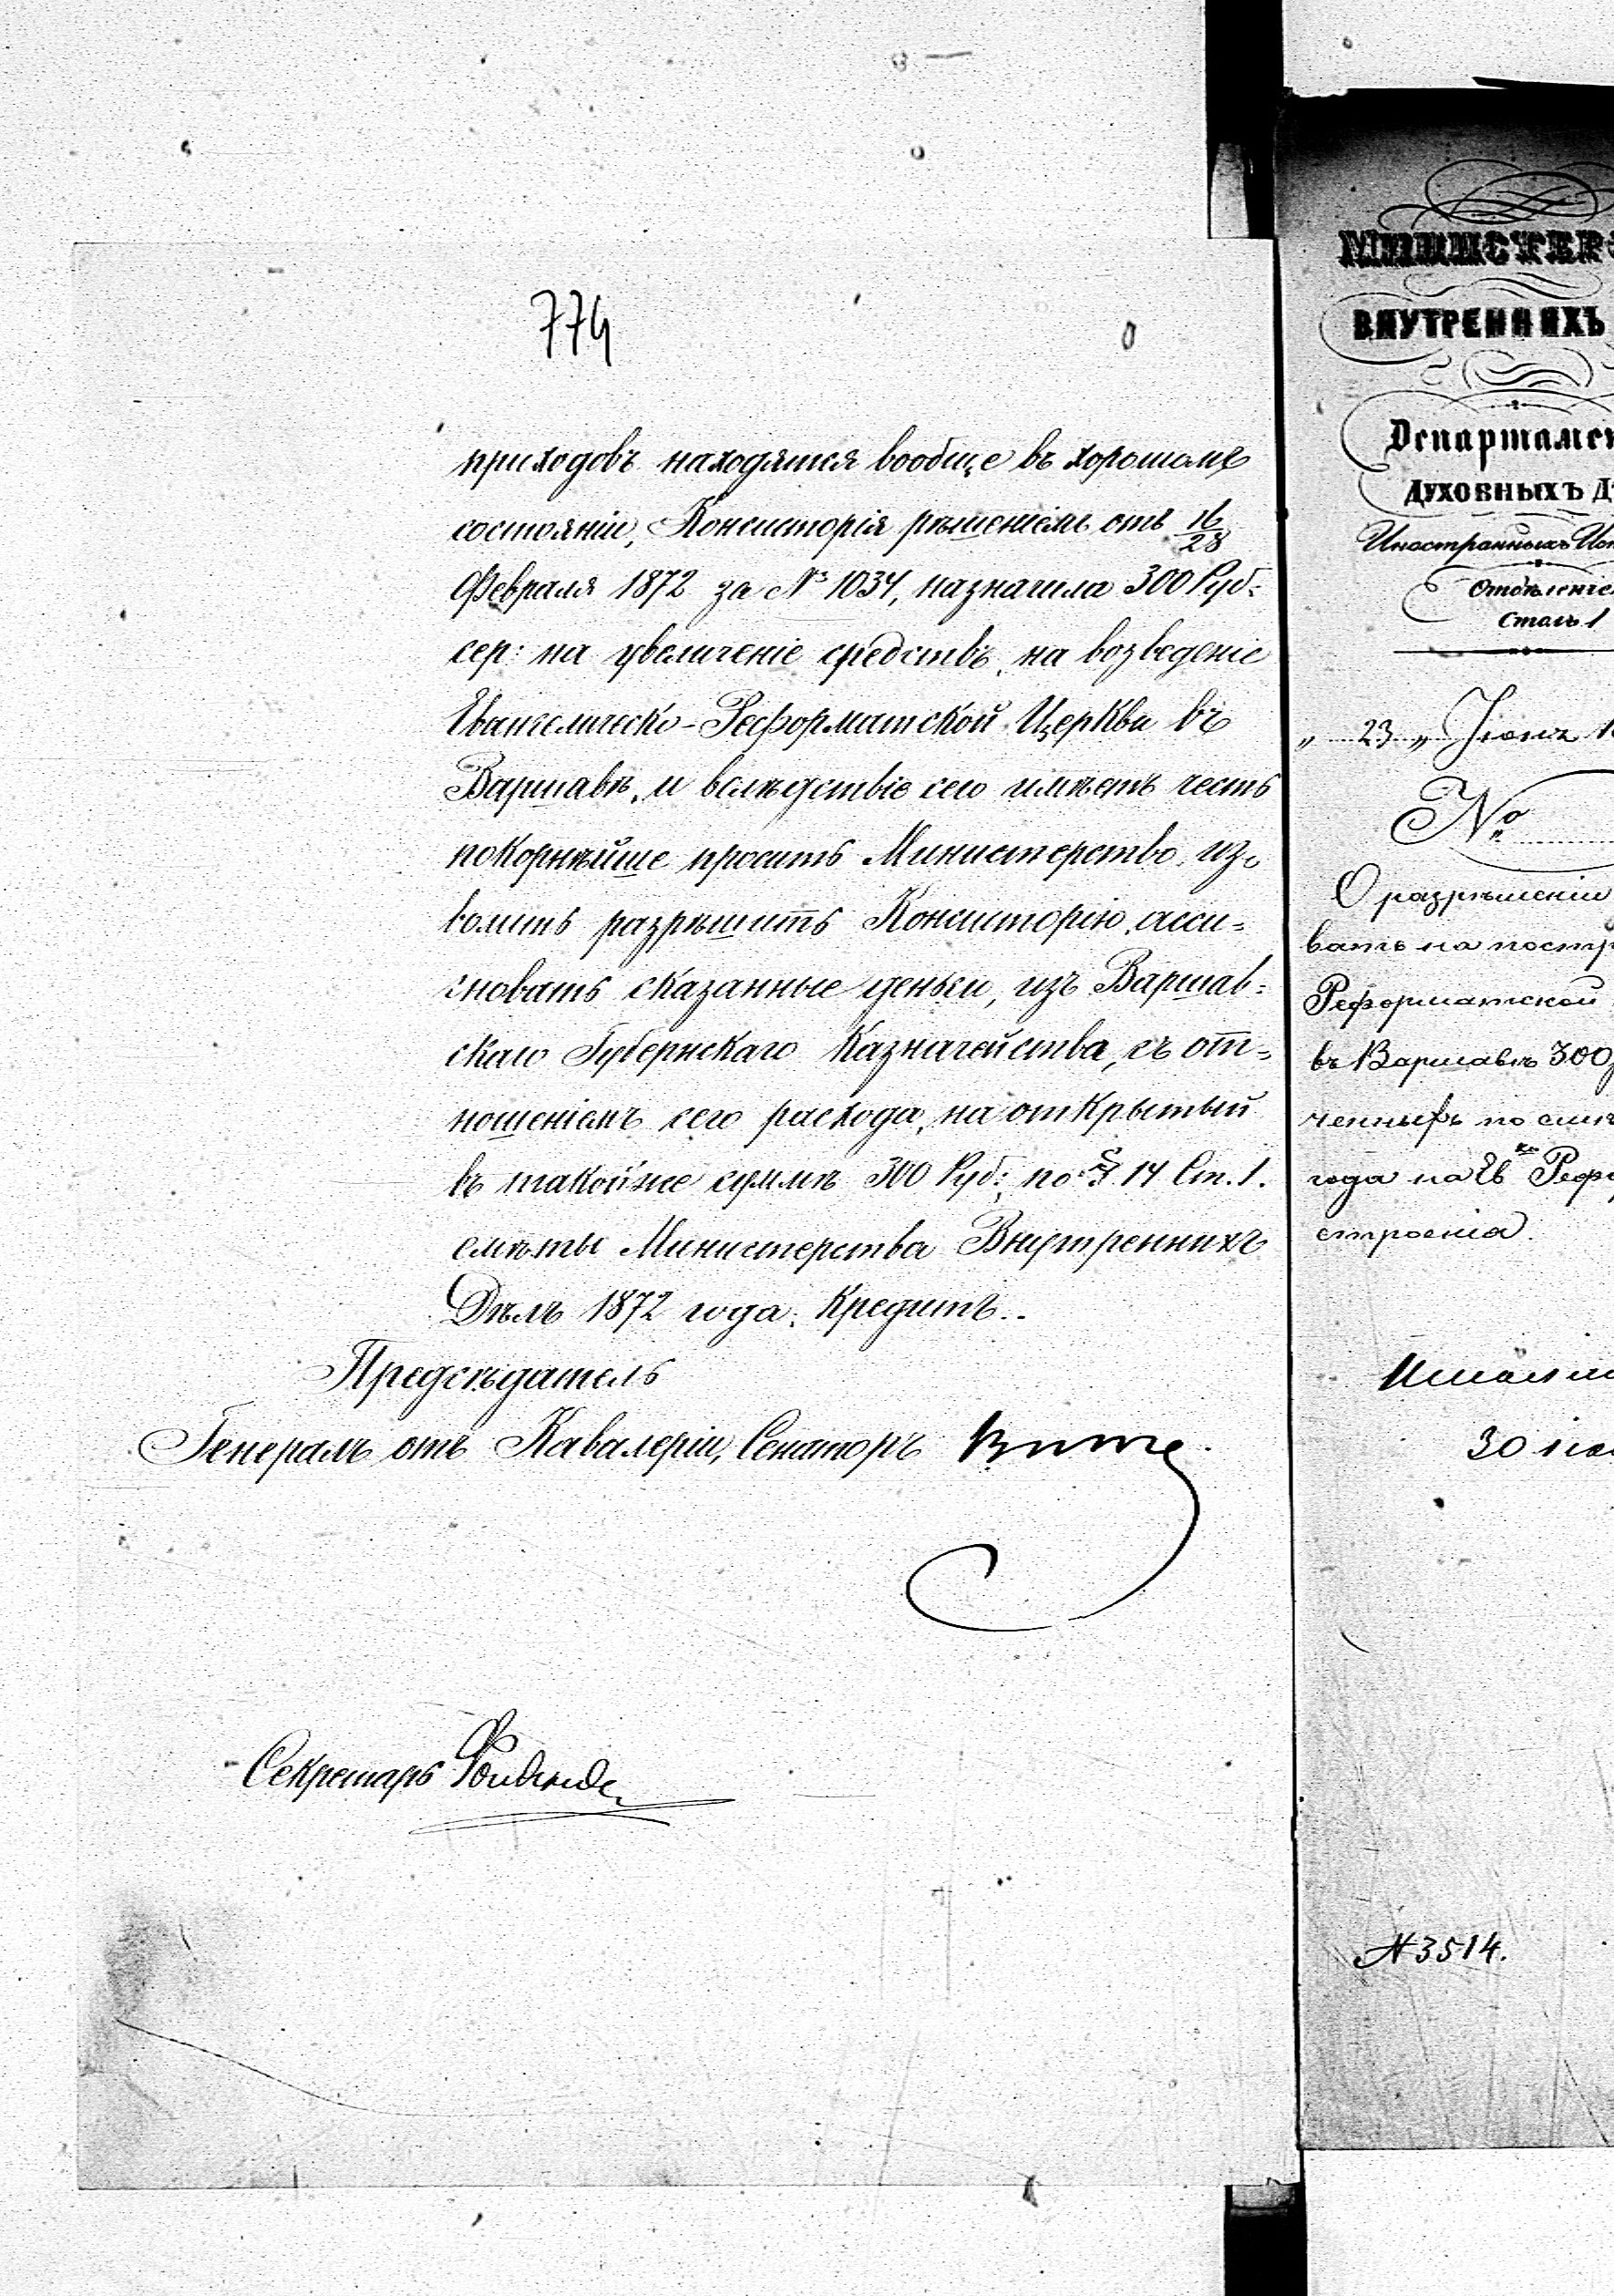 774
приходовъ находятся вообще въ хорошомъ
состоянiи, Консисторiя рѣшенiемъ отъ 16/28
Февраля 1872 за № 1034, назначила 300 Руб:
сер: на увеличенiе средствъ, на возведенiе
Евангелическо-Реформатской Церкви въ
Варшавѣ, и вслѣдствiе сего имѣетъ честь
покорнѣйше просить Министерство, из-
волить разрѣшить Консисторiю, асси=
гновать сказанные деньги, изъ Варшав=
скаго Губернскаго Казначейства, съ от=
ношенiемъ сего расхода, на открытый
въ такой же суммѣ 300 Руб: по § 14 Ст. 1.
смѣты Министерства Внутреннихъ
Дѣлъ 1872 года. Кредитъ..
Предсѣдатель
Генералъ отъ Кавалерiи, Сенаторъ Витте
Секретарь
МИНИСТЕР
ВНУТРЕННИХЪ
Департамен
ДУХОВНЫХЪ Д
Иностранныхъ Исп
Отдѣленiе
Столъ 1
„ 23 „ Iюня 18
№
О разрѣшенiи
вать на постр
Реформатской
въ Варшавѣ 300 р
ченныхъ по смѣ
года на Ев. Рефо
строенiя.
30 iюн
№ 3514.